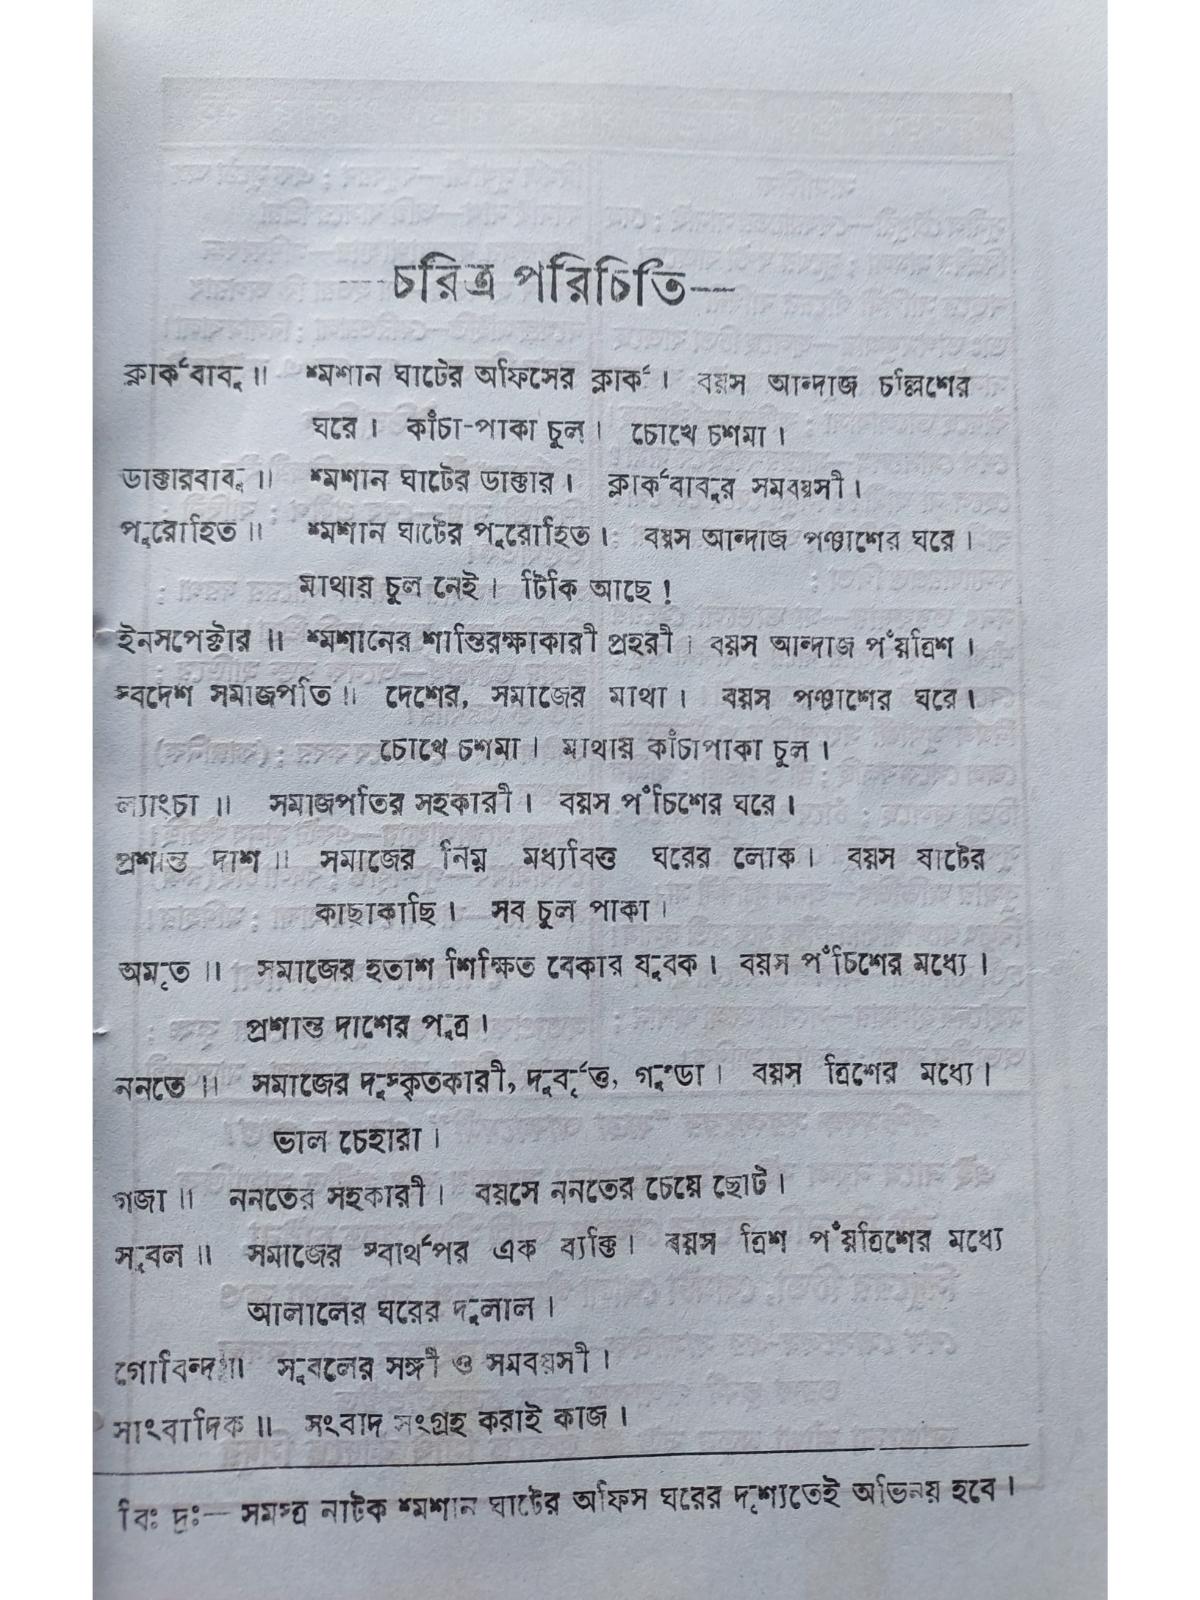 চরিত্র পরিচিতি—
ক্লার্কবাবু ॥ শ্মশান ঘাটের অফিসের ক্লার্ক । বয়স আন্দাজ চল্লিশের
ঘরে । কাঁচা-পাকা চুল । চোখে চশমা ।
ডাক্তারবাবু ॥ শ্মশান ঘাটের ডাক্তার । ক্লার্কবাবুর সমবয়সী ।
পুরোহিত ॥ শ্মশান ঘাটের পুরোহিত । বয়স আন্দাজ পঞ্চাশের ঘরে ।
মাথায় চুল নেই । টিকি আছে !
ইনসপেক্টার ॥ শ্মশানের শান্তিরক্ষাকারী প্রহরী । বয়স আন্দাজ পঁয়ত্রিশ ।
স্বদেশ সমাজপতি ॥ দেশের, সমাজের মাথা । বয়স পঞ্চাশের ঘরে ।
চোখে চশমা । মাথায় কাঁচাপাকা চুল ।
ল্যাংচা ॥ সমাজপতির সহকারী । বয়স পঁচিশের ঘরে ।
প্রশান্ত দাশ ॥ সমাজের নিম্ন মধ্যবিত্ত ঘরের লোক । বয়স ষাটের
কাছাকাছি । সব চুল পাকা ।
অমৃত ॥ সমাজের হতাশ শিক্ষিত বেকার যুবক । বয়স পঁচিশের মধ্যে ।
প্রশান্ত দাশের পুত্র ।
ননতে ॥ সমাজের দুস্কৃতকারী, দুর্বৃত্ত, গুণ্ডা । বয়স ত্রিশের মধ্যে ।
ভাল চেহারা ।
গজা ॥ ননতের সহকারী । বয়সে ননতের চেয়ে ছোট ।
সুবল ॥ সমাজের স্বার্থপর এক ব্যক্তি । বয়স ত্রিশ পঁয়ত্রিশের মধ্যে
আলালের ঘরের দুলাল ।
গোবিন্দ ॥ সুবলের সঙ্গী ও সমবয়সী ।
সাংবাদিক ॥ সংবাদ সংগ্রহ করাই কাজ ।
বিঃ দ্রঃ— সমস্ত নাটক শ্মশান ঘাটের অফিস ঘরের দৃশ্যতেই অভিনয় হবে ।